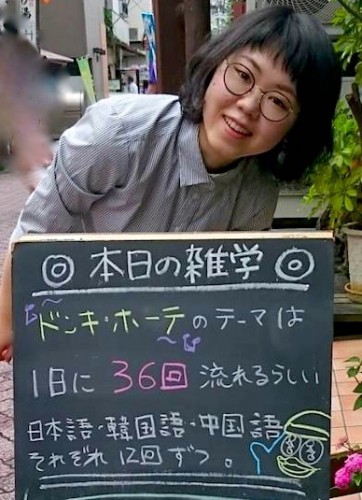 ◎ 本日の雑学 ◎
ドンキ・ホーテのテーマは
1日に 36回 流れるらしい
日本語・韓国語・中国語
それぞれ12回ずつ。